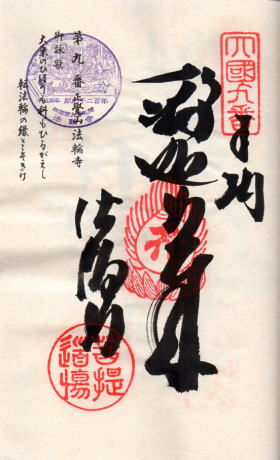 四國九番
奉納
釈迦如来
法輪寺
菩提道場
第九番正覚山法輪寺
御詠歌
大乗のひほうも科もひるがえし
転法輪の縁とこそきけ